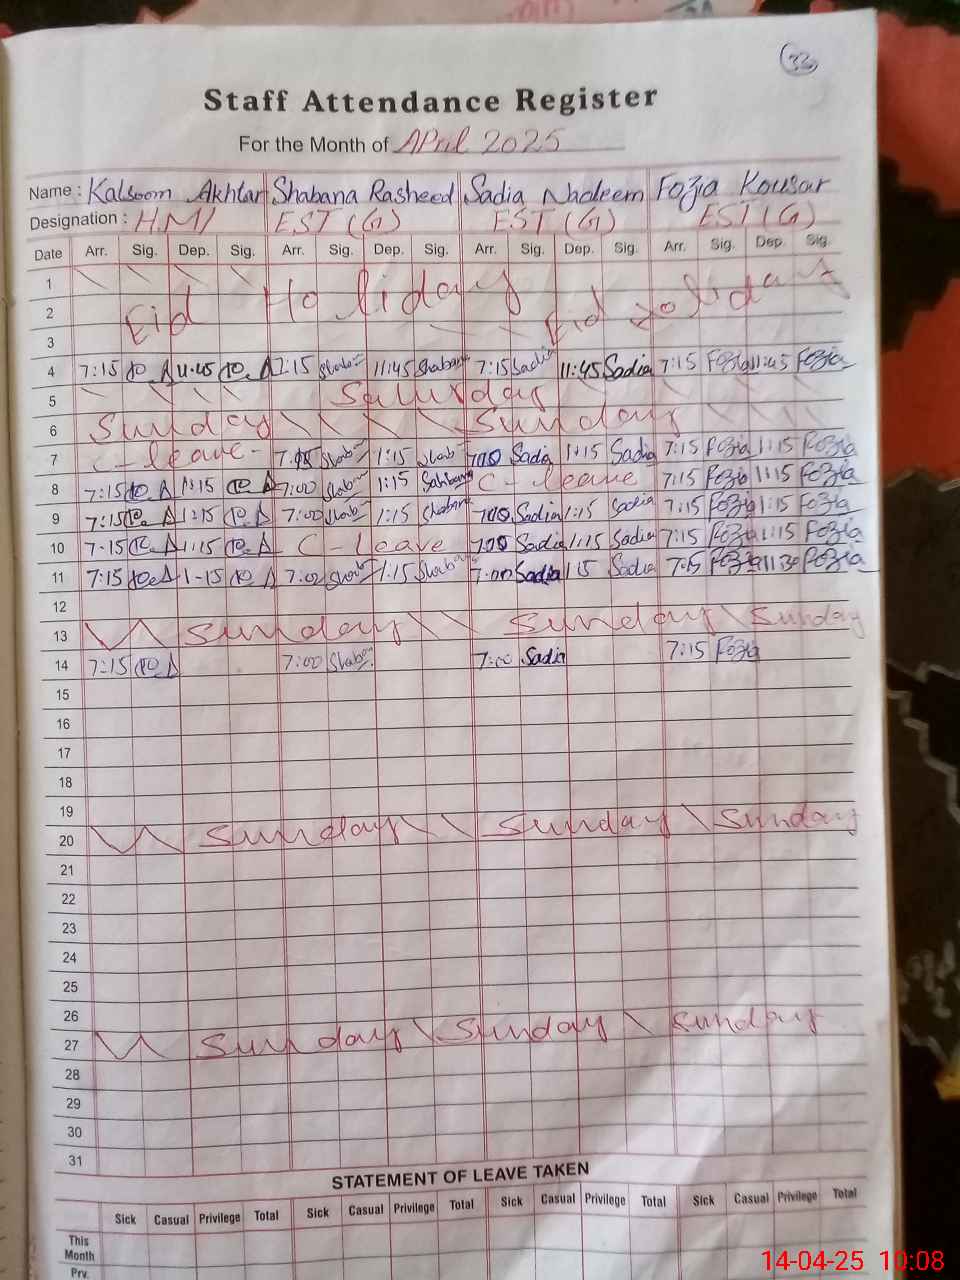 32
Staff Attendance Register
For the Month of APril 2025
Name : Kalsoom Akhtar Shabana Rasheed Sadia Nadeem Fozia Kousar
Designation : HM EST (G) EST (G) EST (G)
Date Arr. Sig. Dep. Sig. Arr. Sig. Dep. Sig. Arr. Sig. Dep. Sig. Arr. Sig. Dep. Sig.
1
2 Eid Holiday Eid Holiday
3
4 7:15 11:45 7:15 Shab 11:45 Shabana 7:15 Sadia 11:45 Sadia 7:15 Fozia 11:45 Fozia
5 Saturday
6 Sunday Sunday
7 C-leave- Shab 1:15 Shab 700 Sadia 1:15 Sadia 7:15 Fozia 1:15 Fozia
8 7:15 1:15 7:00 Shab 1:15 C-leave 7:15 Fozia 1:15 Fozia
9 7:15 1:15 7:00 Shab 1:15 Shabana 700 Sadia 1:15 Sadia 7:15 Fozia 1:15 Fozia
10 7-15 1:15 C-Leave 700 Sadia 1:15 Sadia 7:15 Fozia 1:15 Fozia
11 7:15 1-15 Shab 1:15 Shab 7:00 Sadia 1:15 Sadia 7:15 Fozia 11:30 Fozia
12
13 Sunday Sunday Sunday
14 7:15 7:00 Shab 7:00 Sadia 7:15 Fozia
15
16
17
18
19
20 Sunday Sunday Sunday
21
22
23
24
25
26
27 Sunday Sunday Sunday
28
29
30
31
STATEMENT OF LEAVE TAKEN
Sick Casual Privilege Total Sick Casual Privilege Total Sick Casual Privilege Total Sick Casual Privilege Total
This
Month
Prv.
14-04-25 10:08